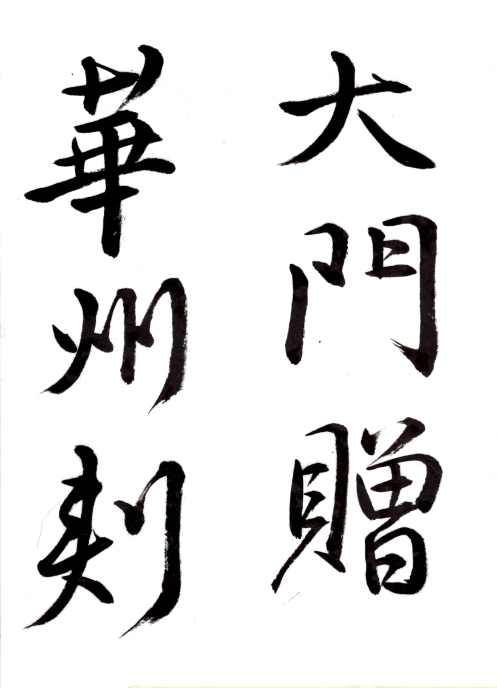 大門贈
華州刺